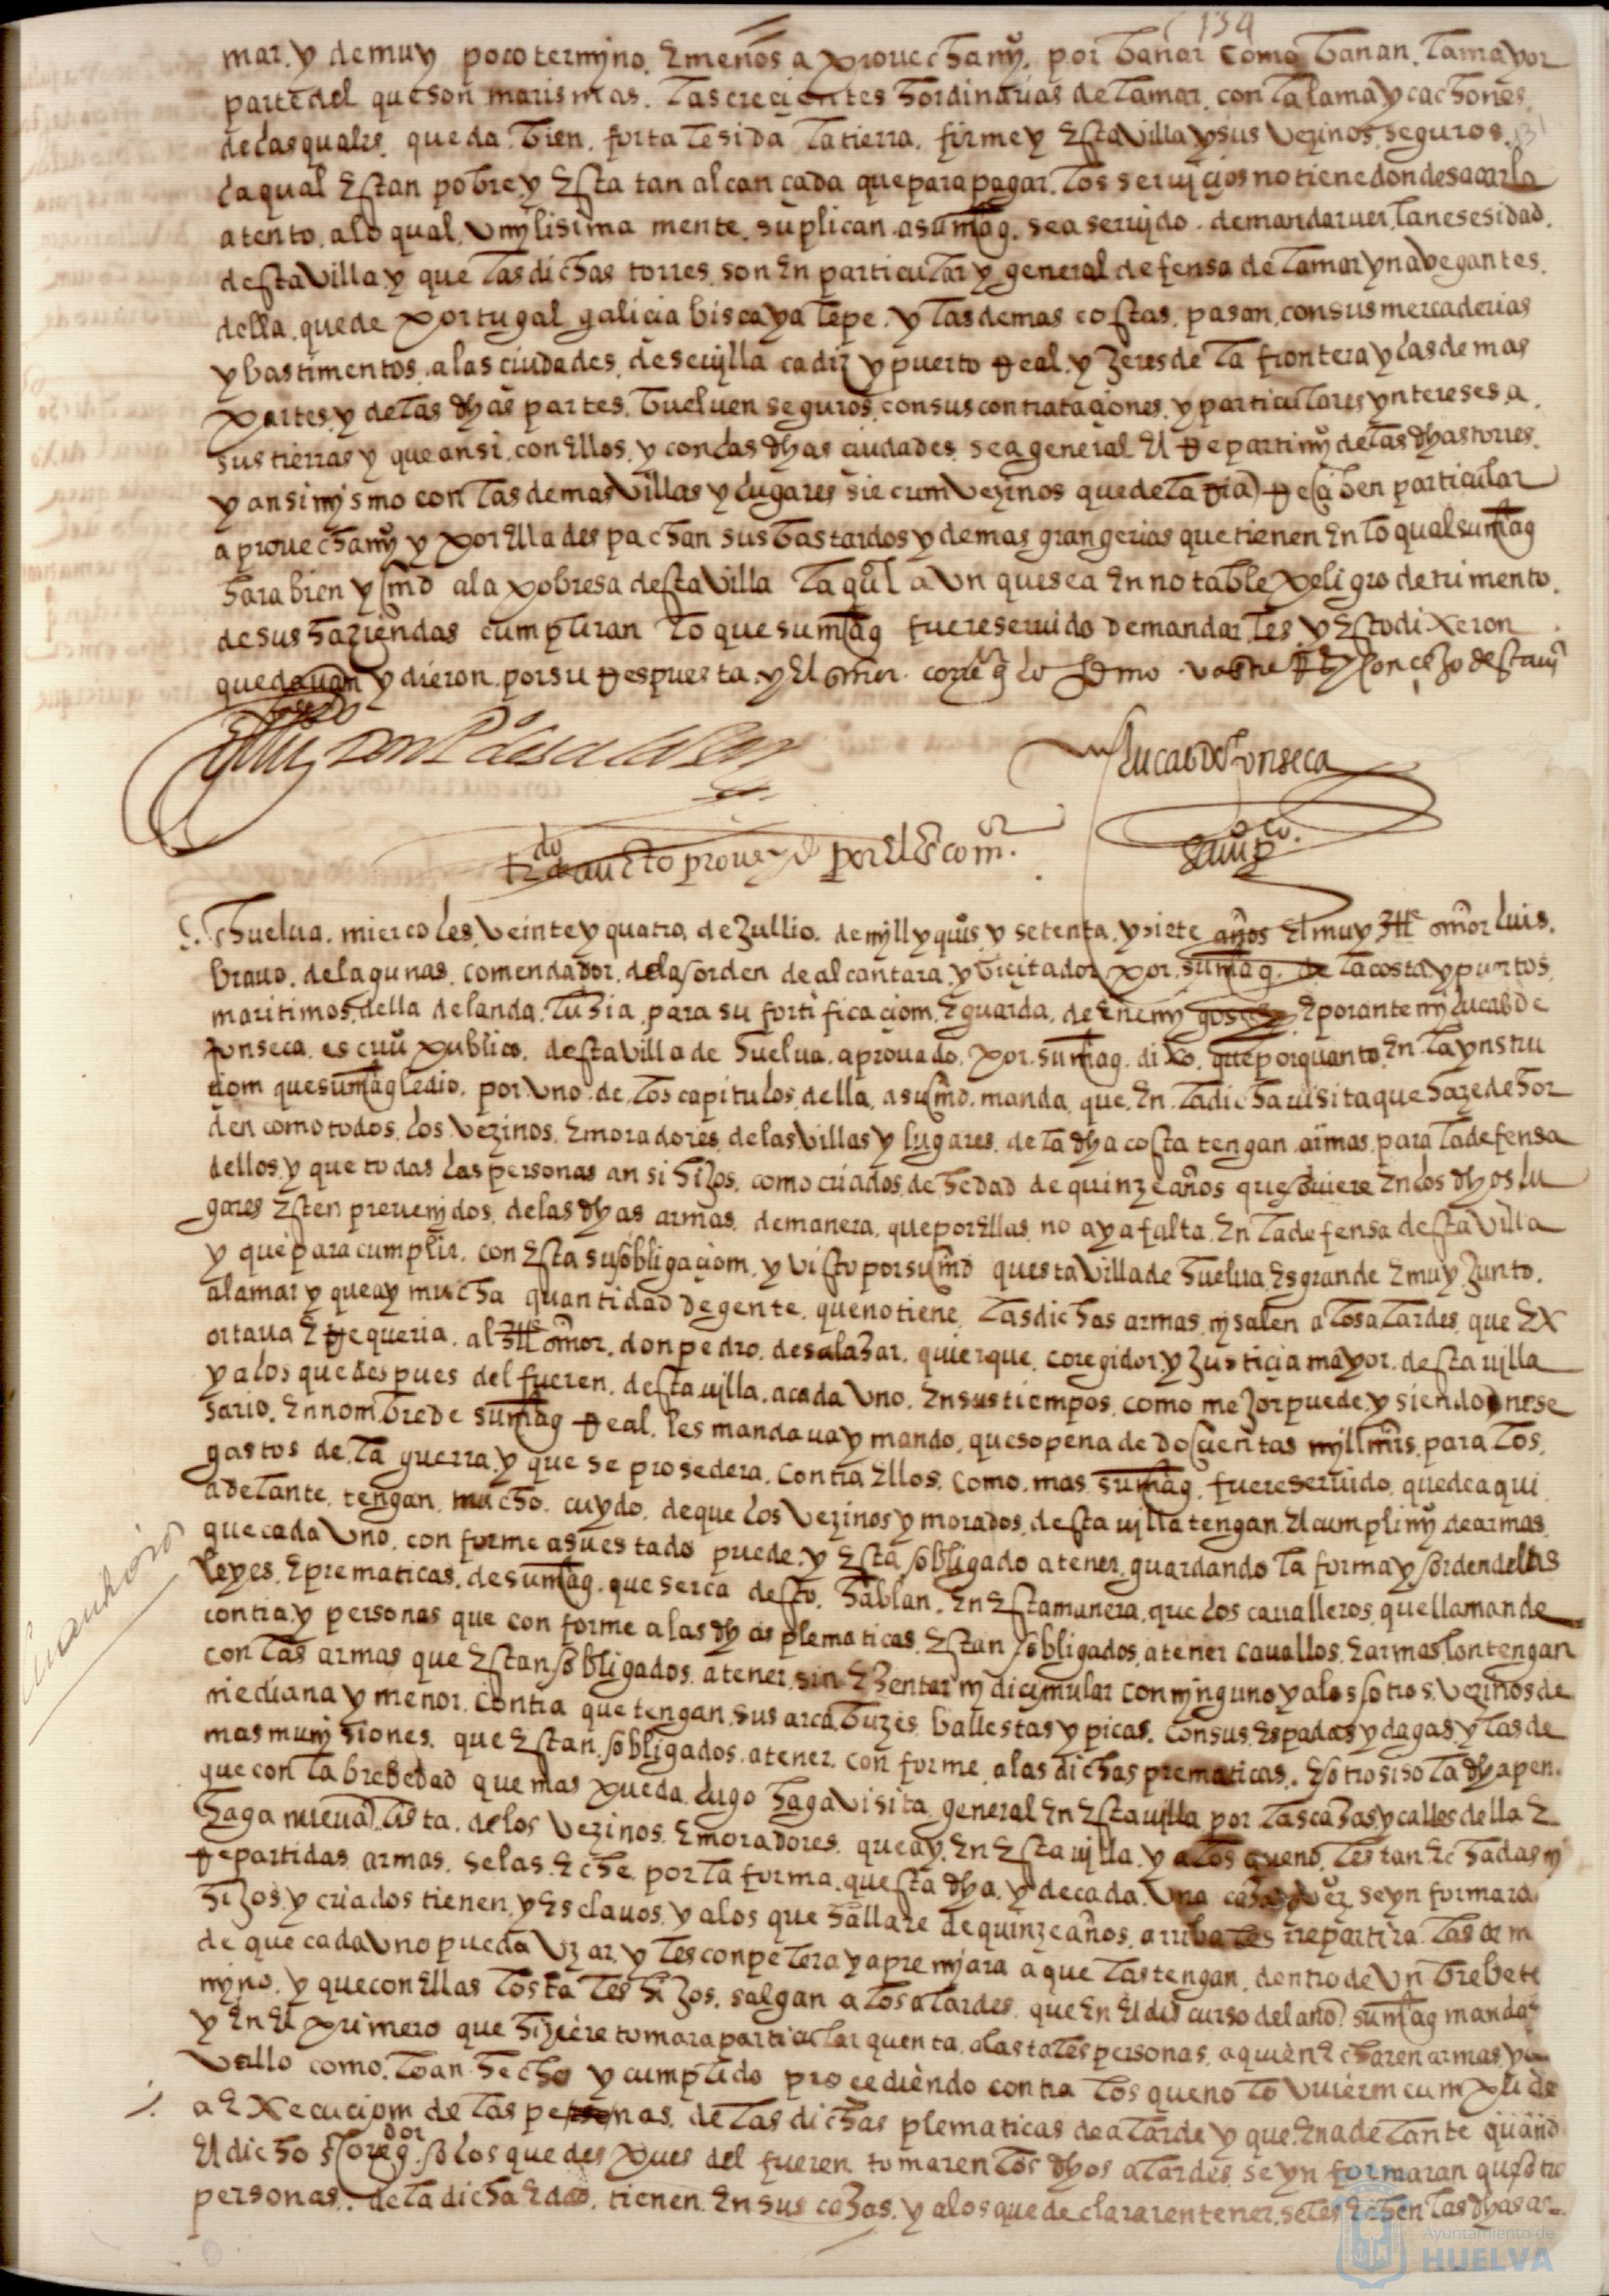 134
mar. y de muy poco termyno. E menos aprouechamyº. por bañar como bañan. la mayor
parte del que son marismas. las crecientes hordinarias de la mar. con la lama y cachones
de las quales. queda. bien. fortalesida la tierra. firme y esta villa y sus vezinos seguros.
la qual estan pobre y esta tan alcançada que para pagar. los seruycios no tiene donde sacarla
atento. a lo qual. vmylisima mente. suplican. a su mag. sea seruydo. de mandar uer. la nesesidad.
desta villa y que las dichas torres. son en particular y general defensa de la mar y nabegantes.
della. que de portugal galicia biscaya lepe. y las demas costas. pasan. con sus mercaderias
y bastimentos. a las ciudades. de seuylla cadiz y puerto Real. y xeres de la frontera y las demas
partes. y de las dhas partes. bueluen seguros. con sus contrataciones. y particulares yntereses. a.
sus tierras y que ansi. con ellos. y con las dhas ciudades. sea general el Repartimyº de las dhas torres.
y ansi mysmo con las demas villas y lugares sircumvezinos que de la Ria) Resiben particular
aprouechamyº y por ella despachan sus bastardos y demas grangerias que tienen en lo qual su mag
hara bien y md a la pobresa desta villa la qual avn que sea en notable peligro detrimento.
de sus haziendas cumpliran lo que su mag fuere seruido de mandarles. y esto dixeron
y dieron. por su Respuesta. y el señor. corregº lo firmo concejo desta uyª
don Pº de salasar
lucas de fonseca
scriuº puco.
tdo. auto proueydo por el sor comor.
huelua. miercoles. veinte y quatro de Jullio. de myll y quis. y setenta. y siete años el muy Ille señor luis.
brauo. de lagunas. comendador. de la orden de alcantara. y bicitador por. su mag. de la costa. y puertos.
maritimos. della del anda. lusia. para su fortificaciom. E guarda. de enemygos E por ante my lucas de
fonseca. escriuº publico. desta villa de huelua. aprouado. por. su mag. dixo. que por quanto. en. la ynstru
ciom que su mag le dio. por. vno. de. los capitulos. della. a su md. manda. que. en. la dicha uisita que haze de hor
den como todos. los. vezinos. E moradores. de las villas y lugares. de la dha costa tengan. armas. para la defensa
dellos. y que todas las personas ansi hijos. como criados. de hedad de quinze años que obiere en los dhos lu
gares esten preuenydos. de las dhas armas. de manera. que por ellas. no aya falta. en la defensa desta villa
y que para cumplir. con esta su obligaciom. y visto por su md questa villa de huelua. es grande E muy Junto.
a la mar y que ay mucha quantidad de gente. que no tiene. las dichas armas. ny salen a los alardes. que ex
ortaua E Requeria. al Ille señor. don pedro. de salasar. coregidor. y Justicia mayor. desta uilla
y a los que despues del fueren. desta uilla. a cada vno. en sus tiempos. como mejor puede. y siendo nese
sario. en nombre de su mag Real. les mandaua y mando. que so pena de docientas myll mrs. para los.
gastos de. la guerra. y que se prosedera. contra ellos. como. mas. su mag. fuere seruido. que de aqui
adelante. tengan. mucho. cuydo. de que los vezinos y morados. desta uylla tengan el cumplimyº de armas
que cada vno. con forme a su estado puede. y esta obligado a tener. guardando la forma y orden de las
leyes. E prematicas. de su mag. que serca desto. hablan. en esta manera. que los caualleros. que llaman de
contia. y personas que con forme a las dhas plematicas. estan obligados. a tener cauallos. E armas. lo tengan
con las armas que estan obligados. a tener. sin exsentar ny dicimular con nynguno y a los otros. vezinos de
mediana y menor. contia que tengan. sus arcabuzes. ballestas y picas. con sus. espadas y dagas. y las de
mas munysiones. que estan. obligados. a tener. con forme. a las dichas prematicas. E otrosi so la dha pen.
que con la brebedad que mas pueda. lugo haga visita. general en esta uylla. por las casas. y calles della E
haga nueua) lista. de los vezinos. E moradores. que ay. en esta uylla. y a los que no. les tan echadas ny
Repartidas. armas. se las. eche. por la forma. questa dha. y de cada. vna se ynformara
hijos. y criados tienen. y esclauos. y a los que hallare de quinze años. arriba les rrepartira. las arm
de que cada vno pueda vzar. y les conpelera y apremyara a que las tengan. dentro de vn brebe te
myno. y que con ellas los ta les hijos. salgan a los alardes. que en el discurso del año. su mag mandar
y en el primero que hiziere tomara particular quenta. a las tales personas. a quien echaren armas. y
vello como. lo an hecho y cumplido procediendo contra los que no lo vuierem cumplide
a execuciom de las penas. de las dichas plematicas de alarde y que. en adelante quand
el dicho sor coregdor. o los que despues del fueren tomaren los dhos alardes. se ynformaran que otro
personas. de la dicha edad. tienen. en sus casas. y a los que declararen tener. se les echen las dhas ar
Ayuntamiento de
HUELVA